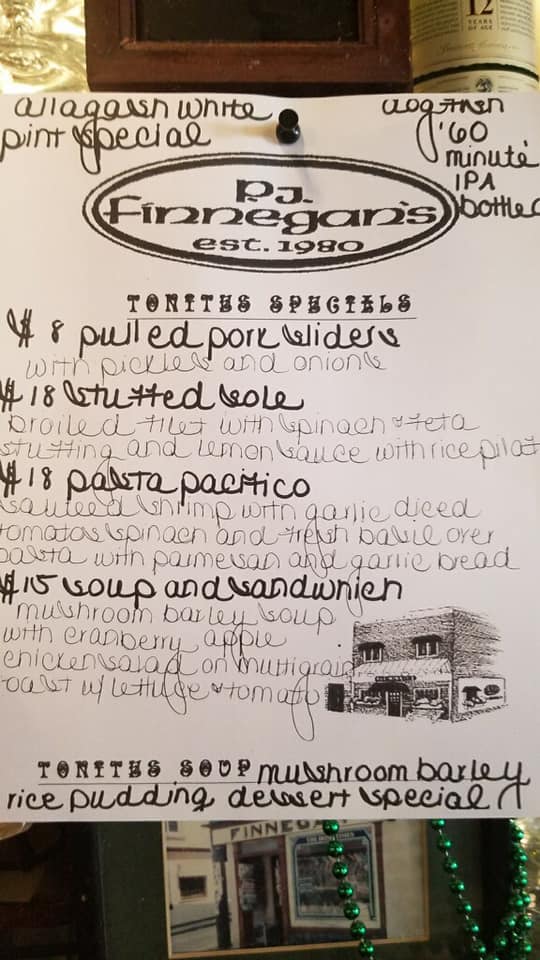 12
YEARS
OF AGE
allagash white
pint special
dogfish
'60
minute
IPA
bottled
P.J.
Finnegan's
est. 1980
TONITES SPECIALS
$8 pulled pork sliders
with pickles and onions
$18 stuffed sole
broiled filet with spinach & feta
stuffing and lemon sauce with rice pilaf
$18 pasta pacifico
sauteed shrimp with garlic diced
tomatos spinach and fresh basil over
pasta with parmesan and garlic bread
$15 soup and sandwhich
mushroom barley soup
with cranberry apple
chicken salad on multigrain
toast w/ lettuce & tomato
TONITES SOUP mushroom barley
rice pudding dessert special
FINNEGAN'S